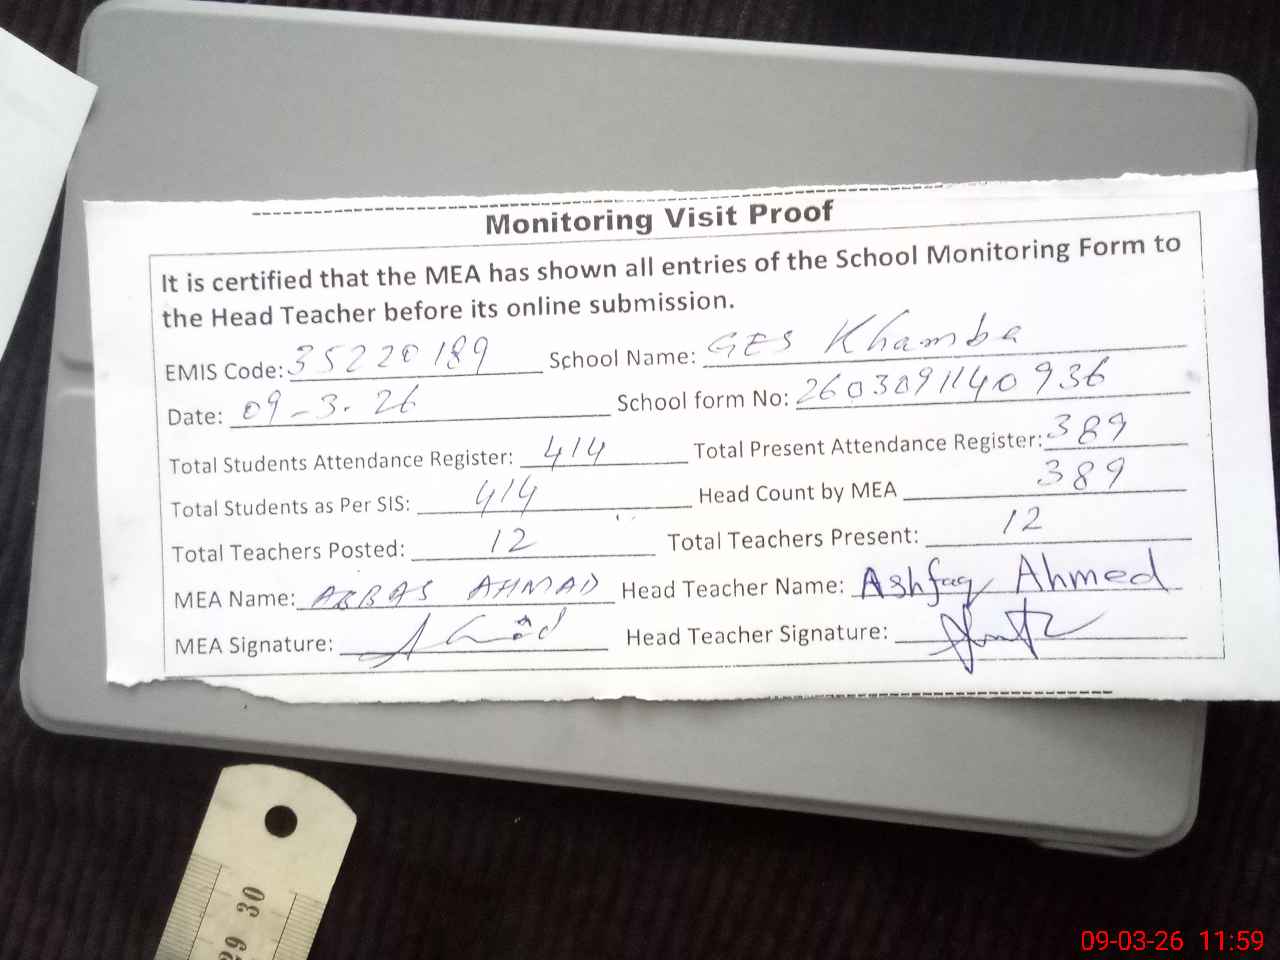 Monitoring Visit Proof
It is certified that the MEA has shown all entries of the School Monitoring Form to
the Head Teacher before its online submission.
EMIS Code: 35220189 School Name: GES Khamba
Date: 09-3-26 School form No: 2603091140936
Total Students Attendance Register: 414 Total Present Attendance Register: 389
Total Students as Per SIS: 414 Head Count by MEA 389
Total Teachers Posted: 12 Total Teachers Present: 12
MEA Name: ABBAS AHMAD Head Teacher Name: Ashfaq Ahmed
MEA Signature: Head Teacher Signature:
29 30
09-03-26 11:59